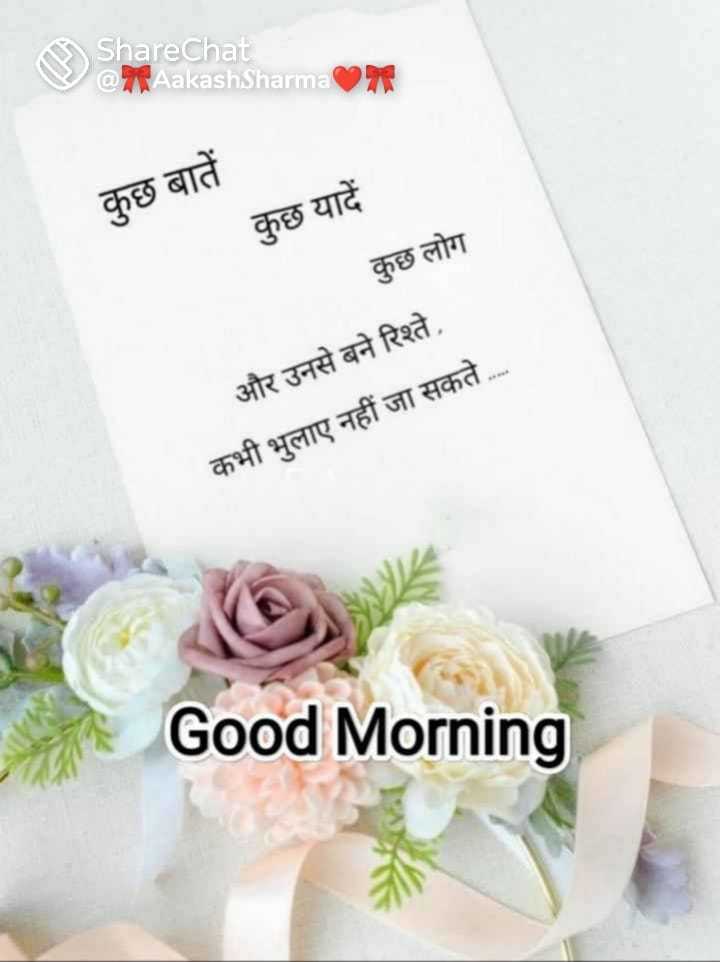 ShareChat
@🎀AakashSharma❤️🎀
कुछ बातें
कुछ यादें
कुछ लोग
और उनसे बने रिश्ते ,
कभी भुलाए नहीं जा सकते .....
Good Morning